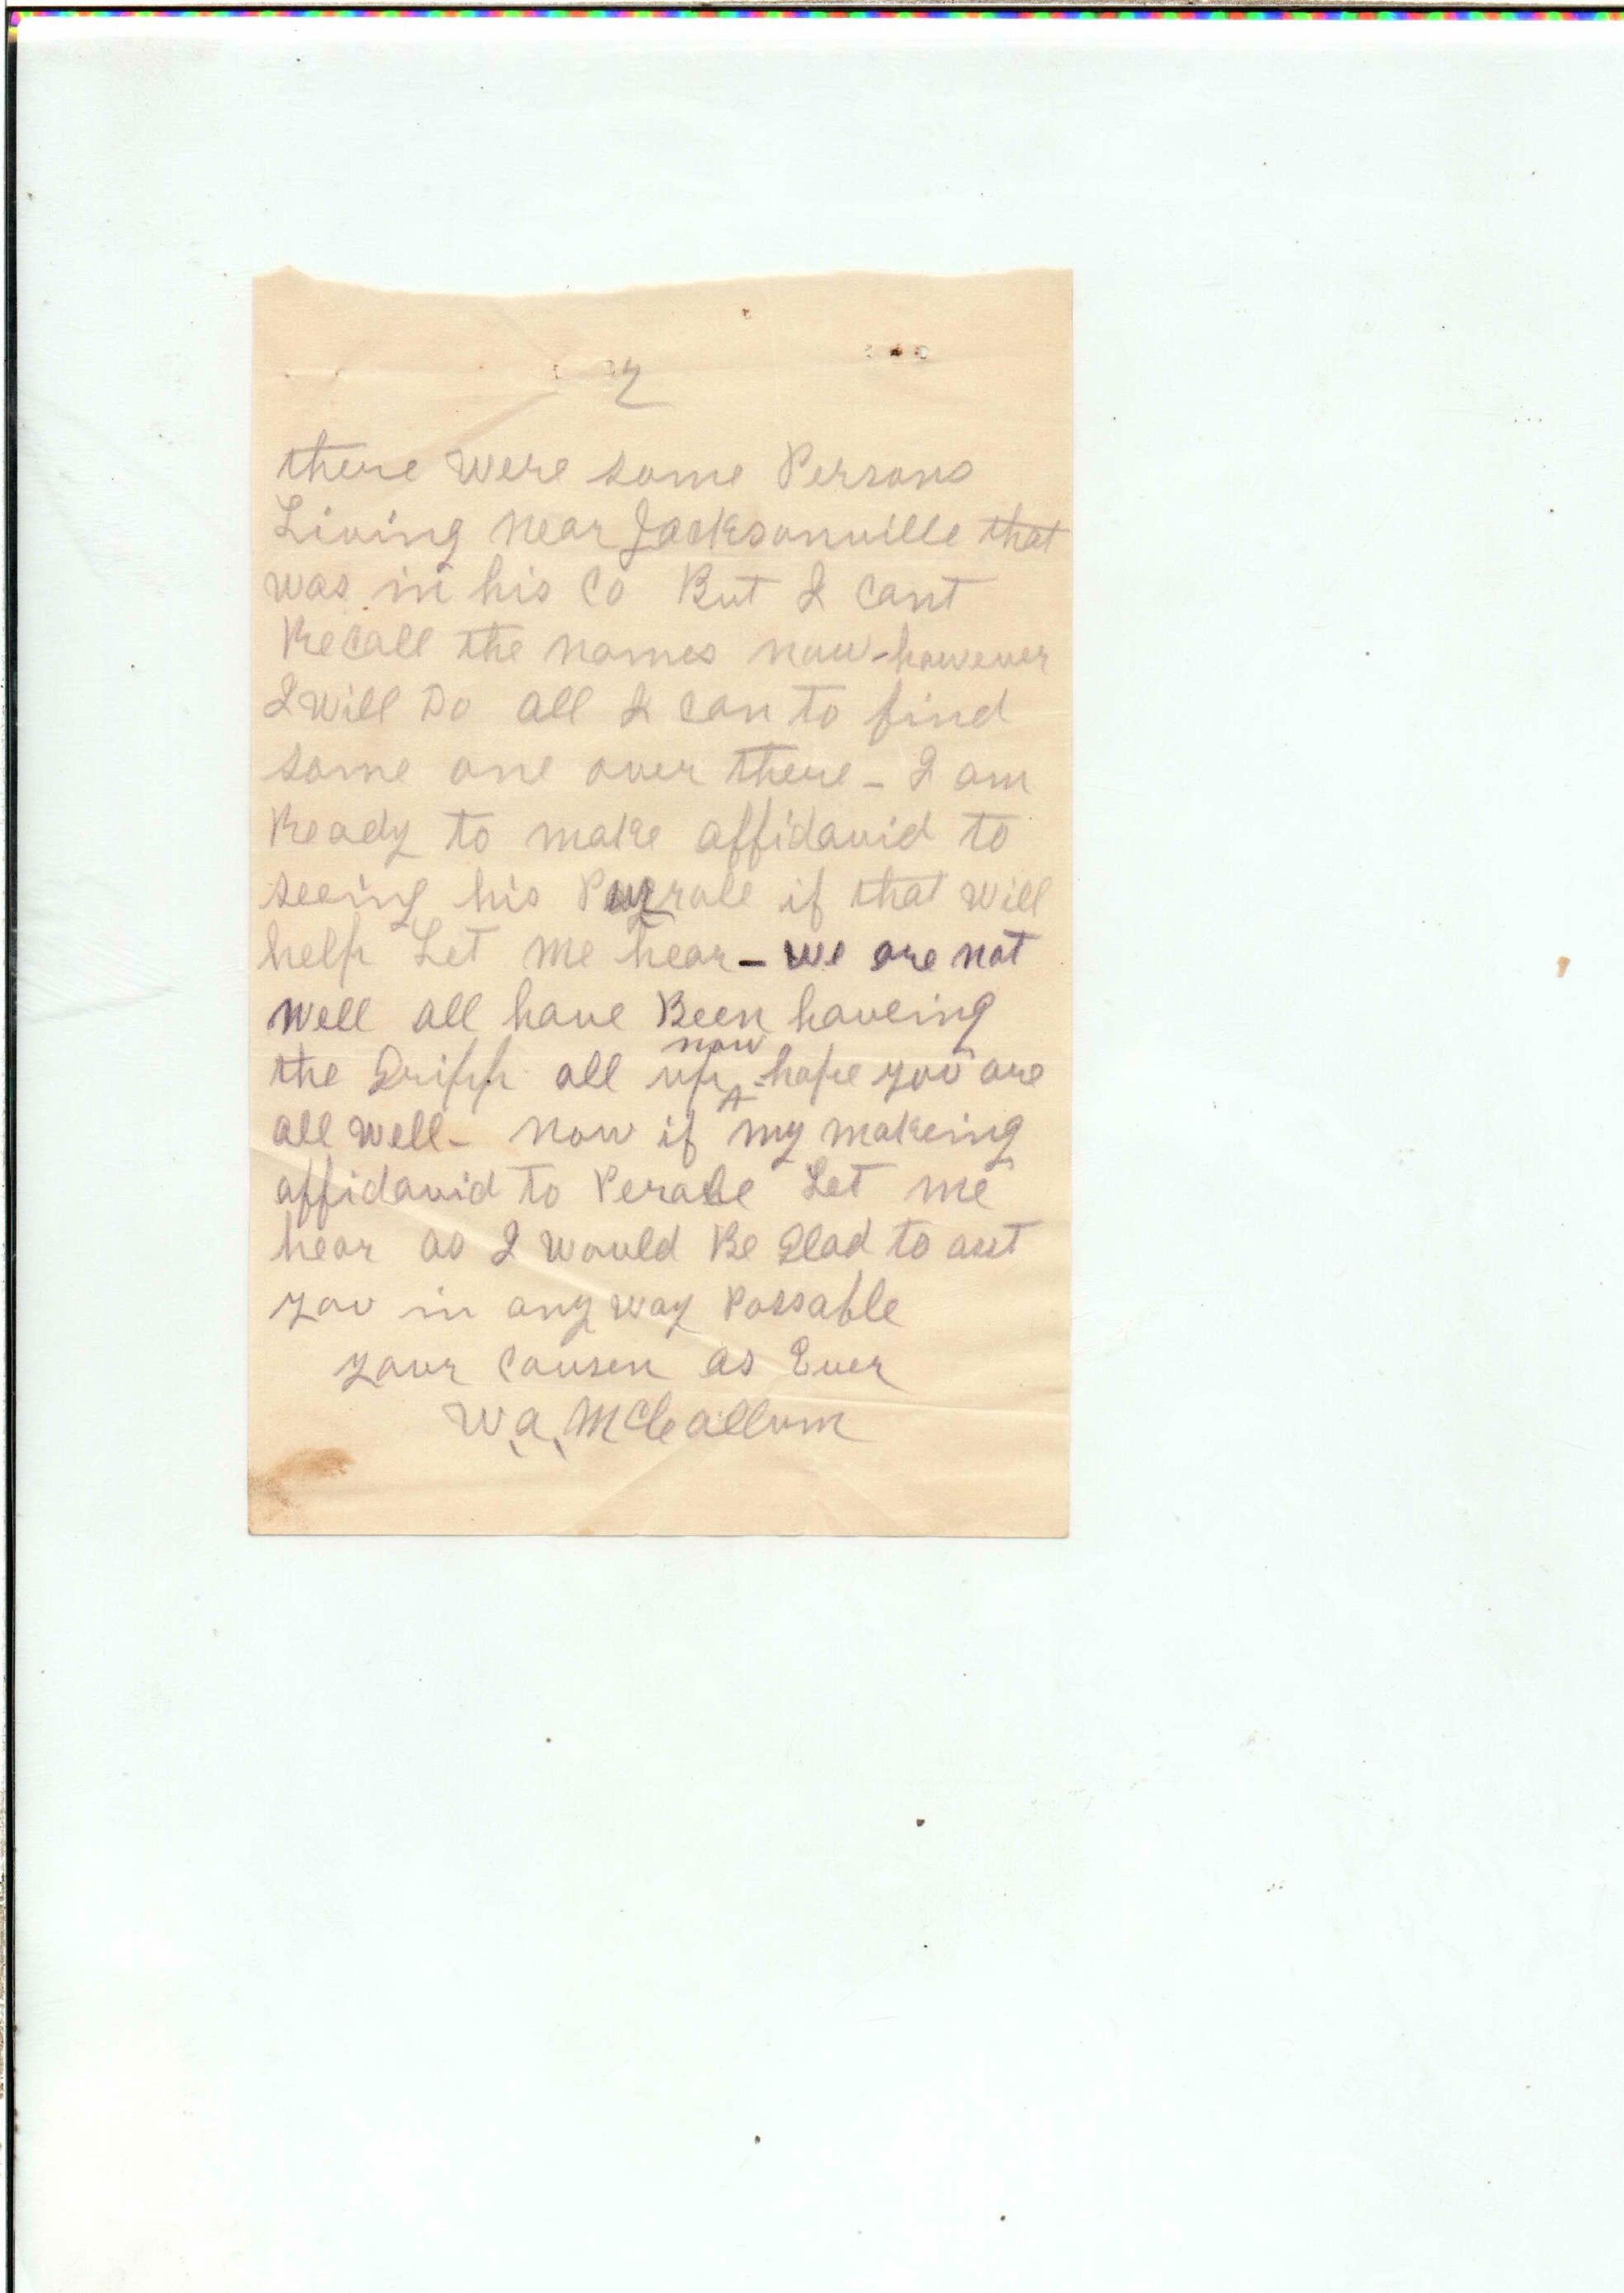 2
there were some Persons
Living near Jacksonville that
was in his Co But I cant
Recall the names now - however
I will Do all I can to find
some one over there - I am
Ready to make affidavid to
seeing his if that will
help Let me hear - we are not
well all have Been haveing
the Gripp all up now - hope you are
all well - now if my makeing
affidavid to Perale Let me
hear as I would Be Glad to
you in any way Possable
your Cousen as Ever
W. A. McCallum